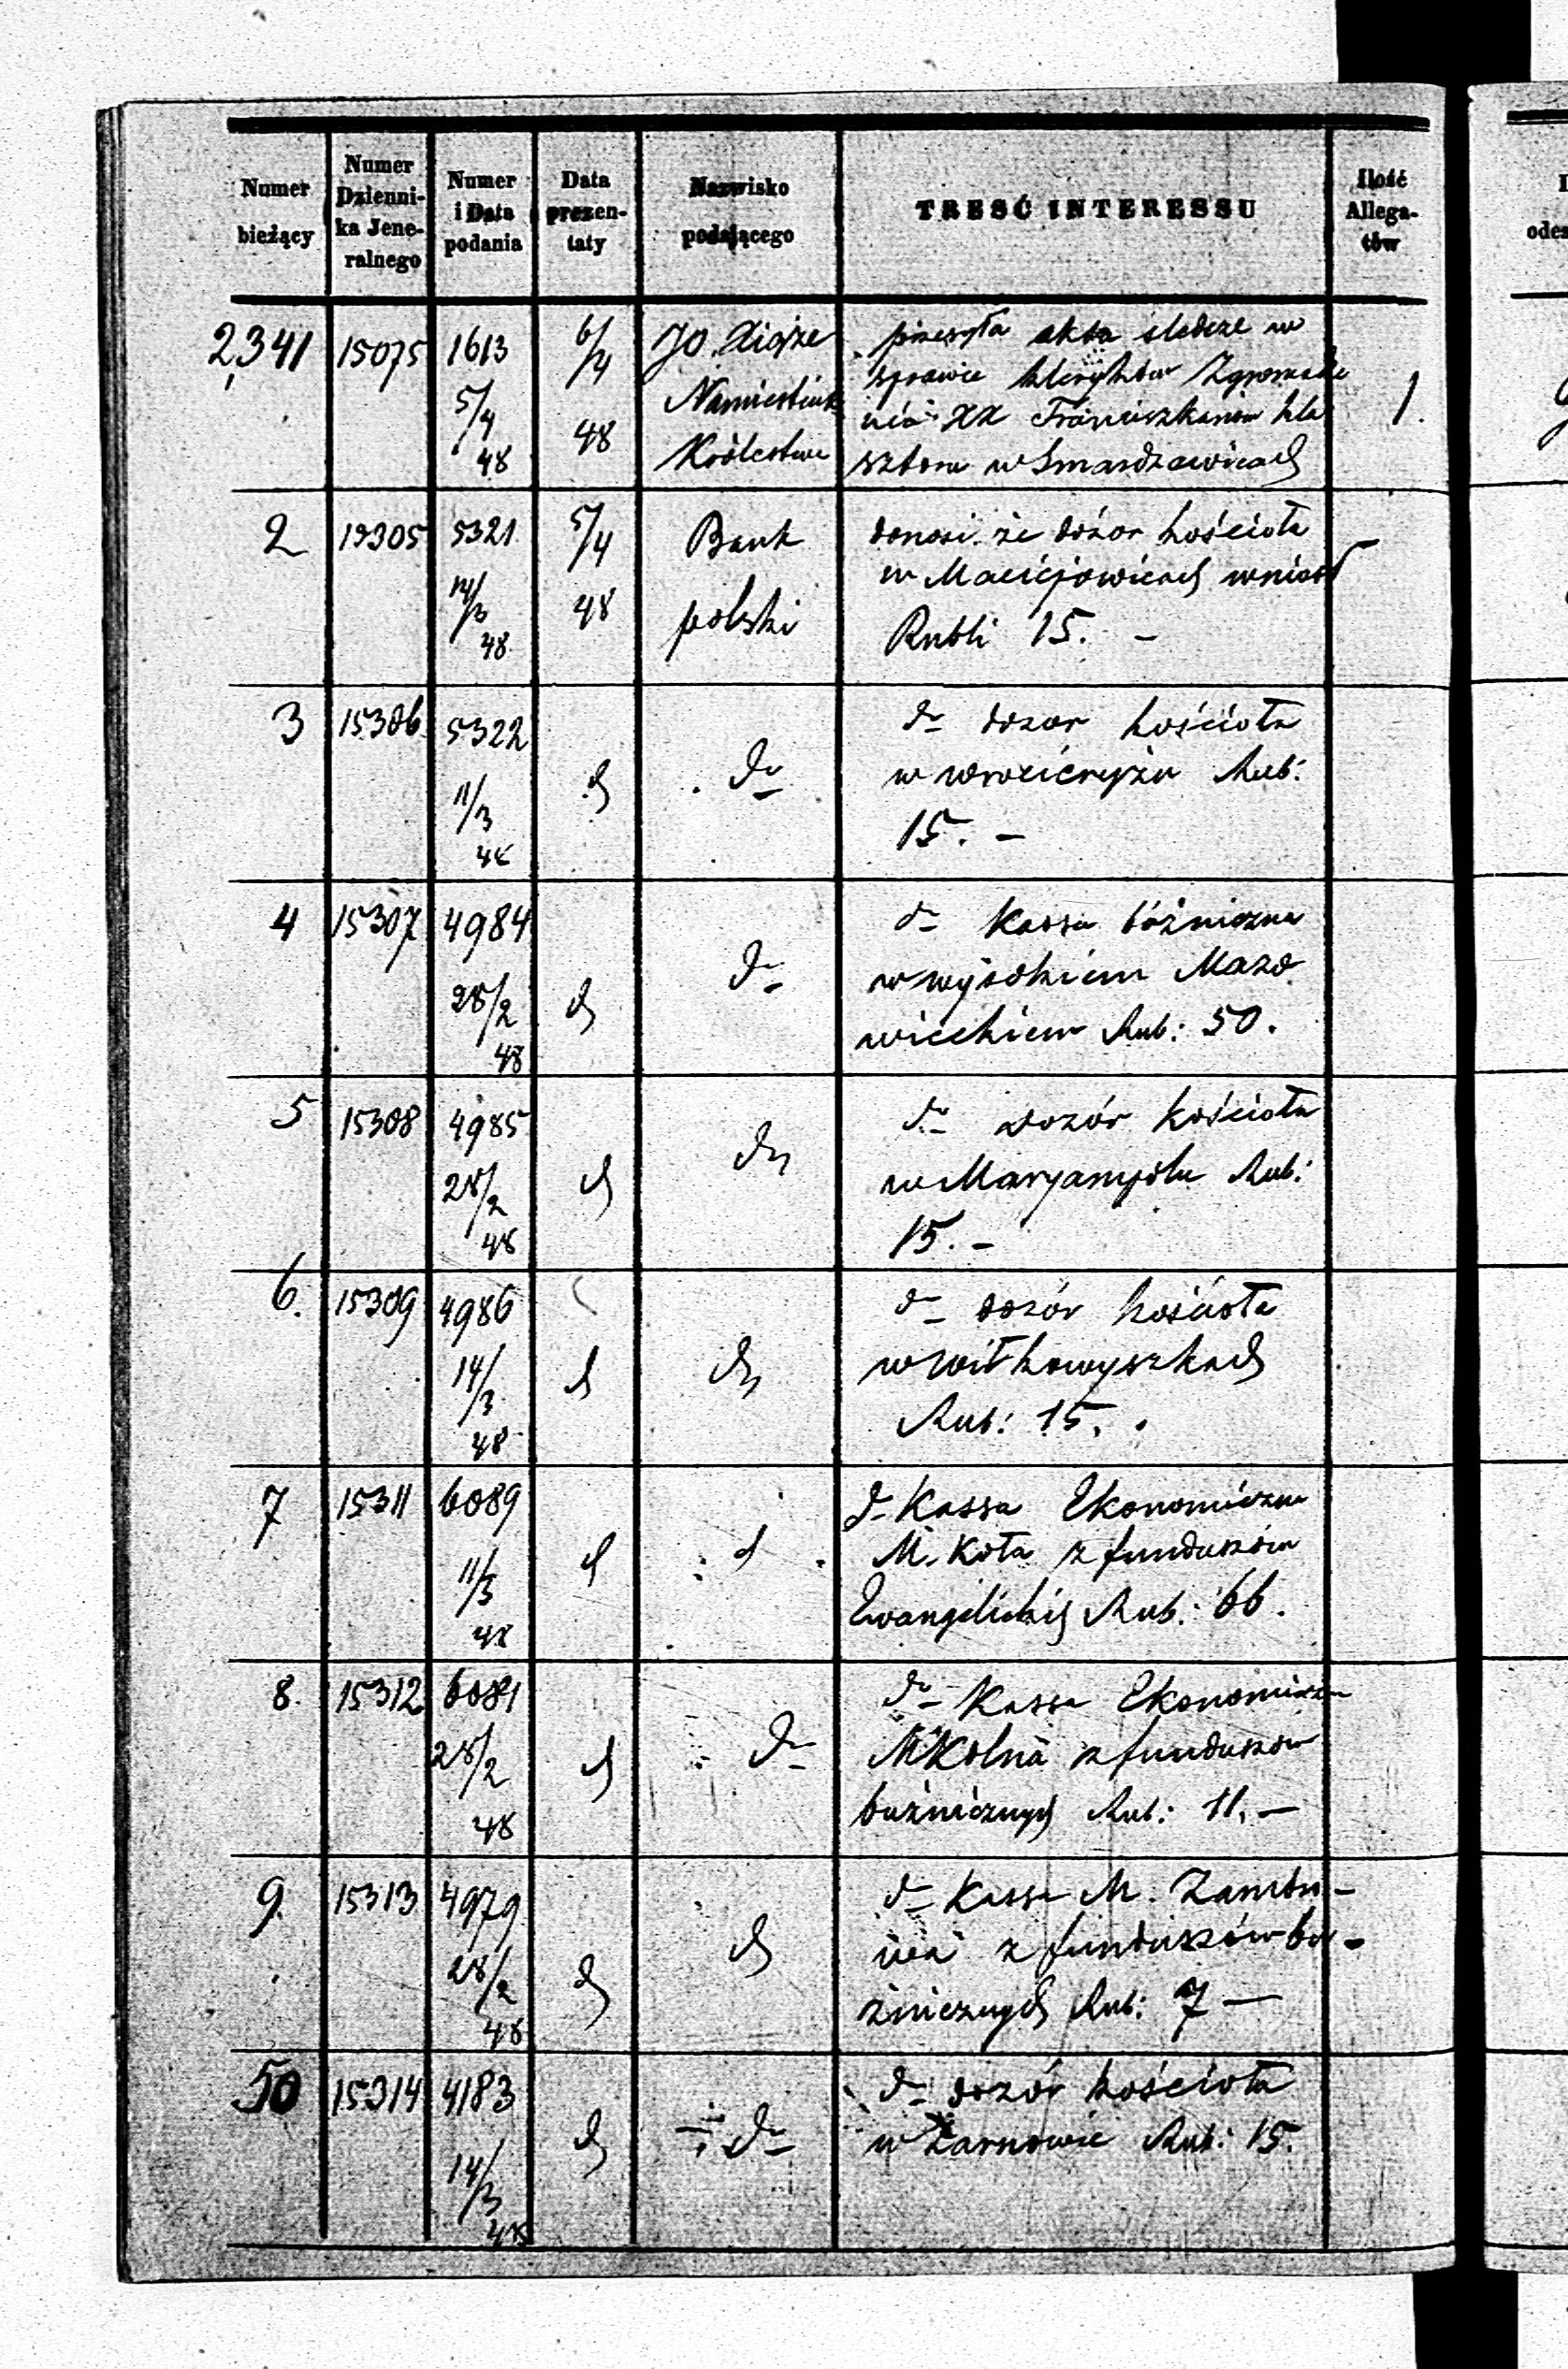 Numer bieżący
Numer Dzienni-
ka Jene-
ralnego
Numer
i Data
podania
Data
prezen-
taty
Nazwisko
podającego
TRESĆ INTERESSU
Ilość
Allega-
tów
2341 15075 1613 5/4 48 6/4 48
JO. Xiąże
Namiestnik
Królestwa
przesyła akta śledcze w
sprawie kleryków Zgromadze
nia XX Franciszkanów kla
sztoru w Smardzewicach
1.
2 15305 5321 14/3 48 5/4 48
Bank
polski
donosi że dozór kościoła
w Maciejowicach wniósł
Rubli 15. –
3 15306 5322 11/3 48 d d°
d° dozor kościoła
w Wrocieryżu Rub:
15. –
4 15307 4984 28/2 48 d d°
d° Kassa bóżniczna
w wysokiem Mazo
wieckiem Rub: 50.
5 15308 4985 28/2 48 d d°
d° dozór kościoła
w Maryampolu Rub:
15. –
6. 15309 4986 14/3 48 d d°
d° dozór kościoła
w Wiłkowyszkach
Rub: 15.
7 15311 6089 11/3 48 d d
d° Kassa Ekonomiczna
M. Koła z funduszów
Ewangelickich Rub: 66.
8. 15312 6081 28/2 48 d d°
d° Kassa Ekonomiczn
M Kolna z funduszów
bużnicznych Rub: 11. –
9. 15313 4979 28/2 48 d d
d° Kassa M.
z funduszów bu-
żnicznych Rub: 7 –
50 15314 4183 14/3 48 d d°
d° dozór kościoła
w Żarnowie Rub: 15.